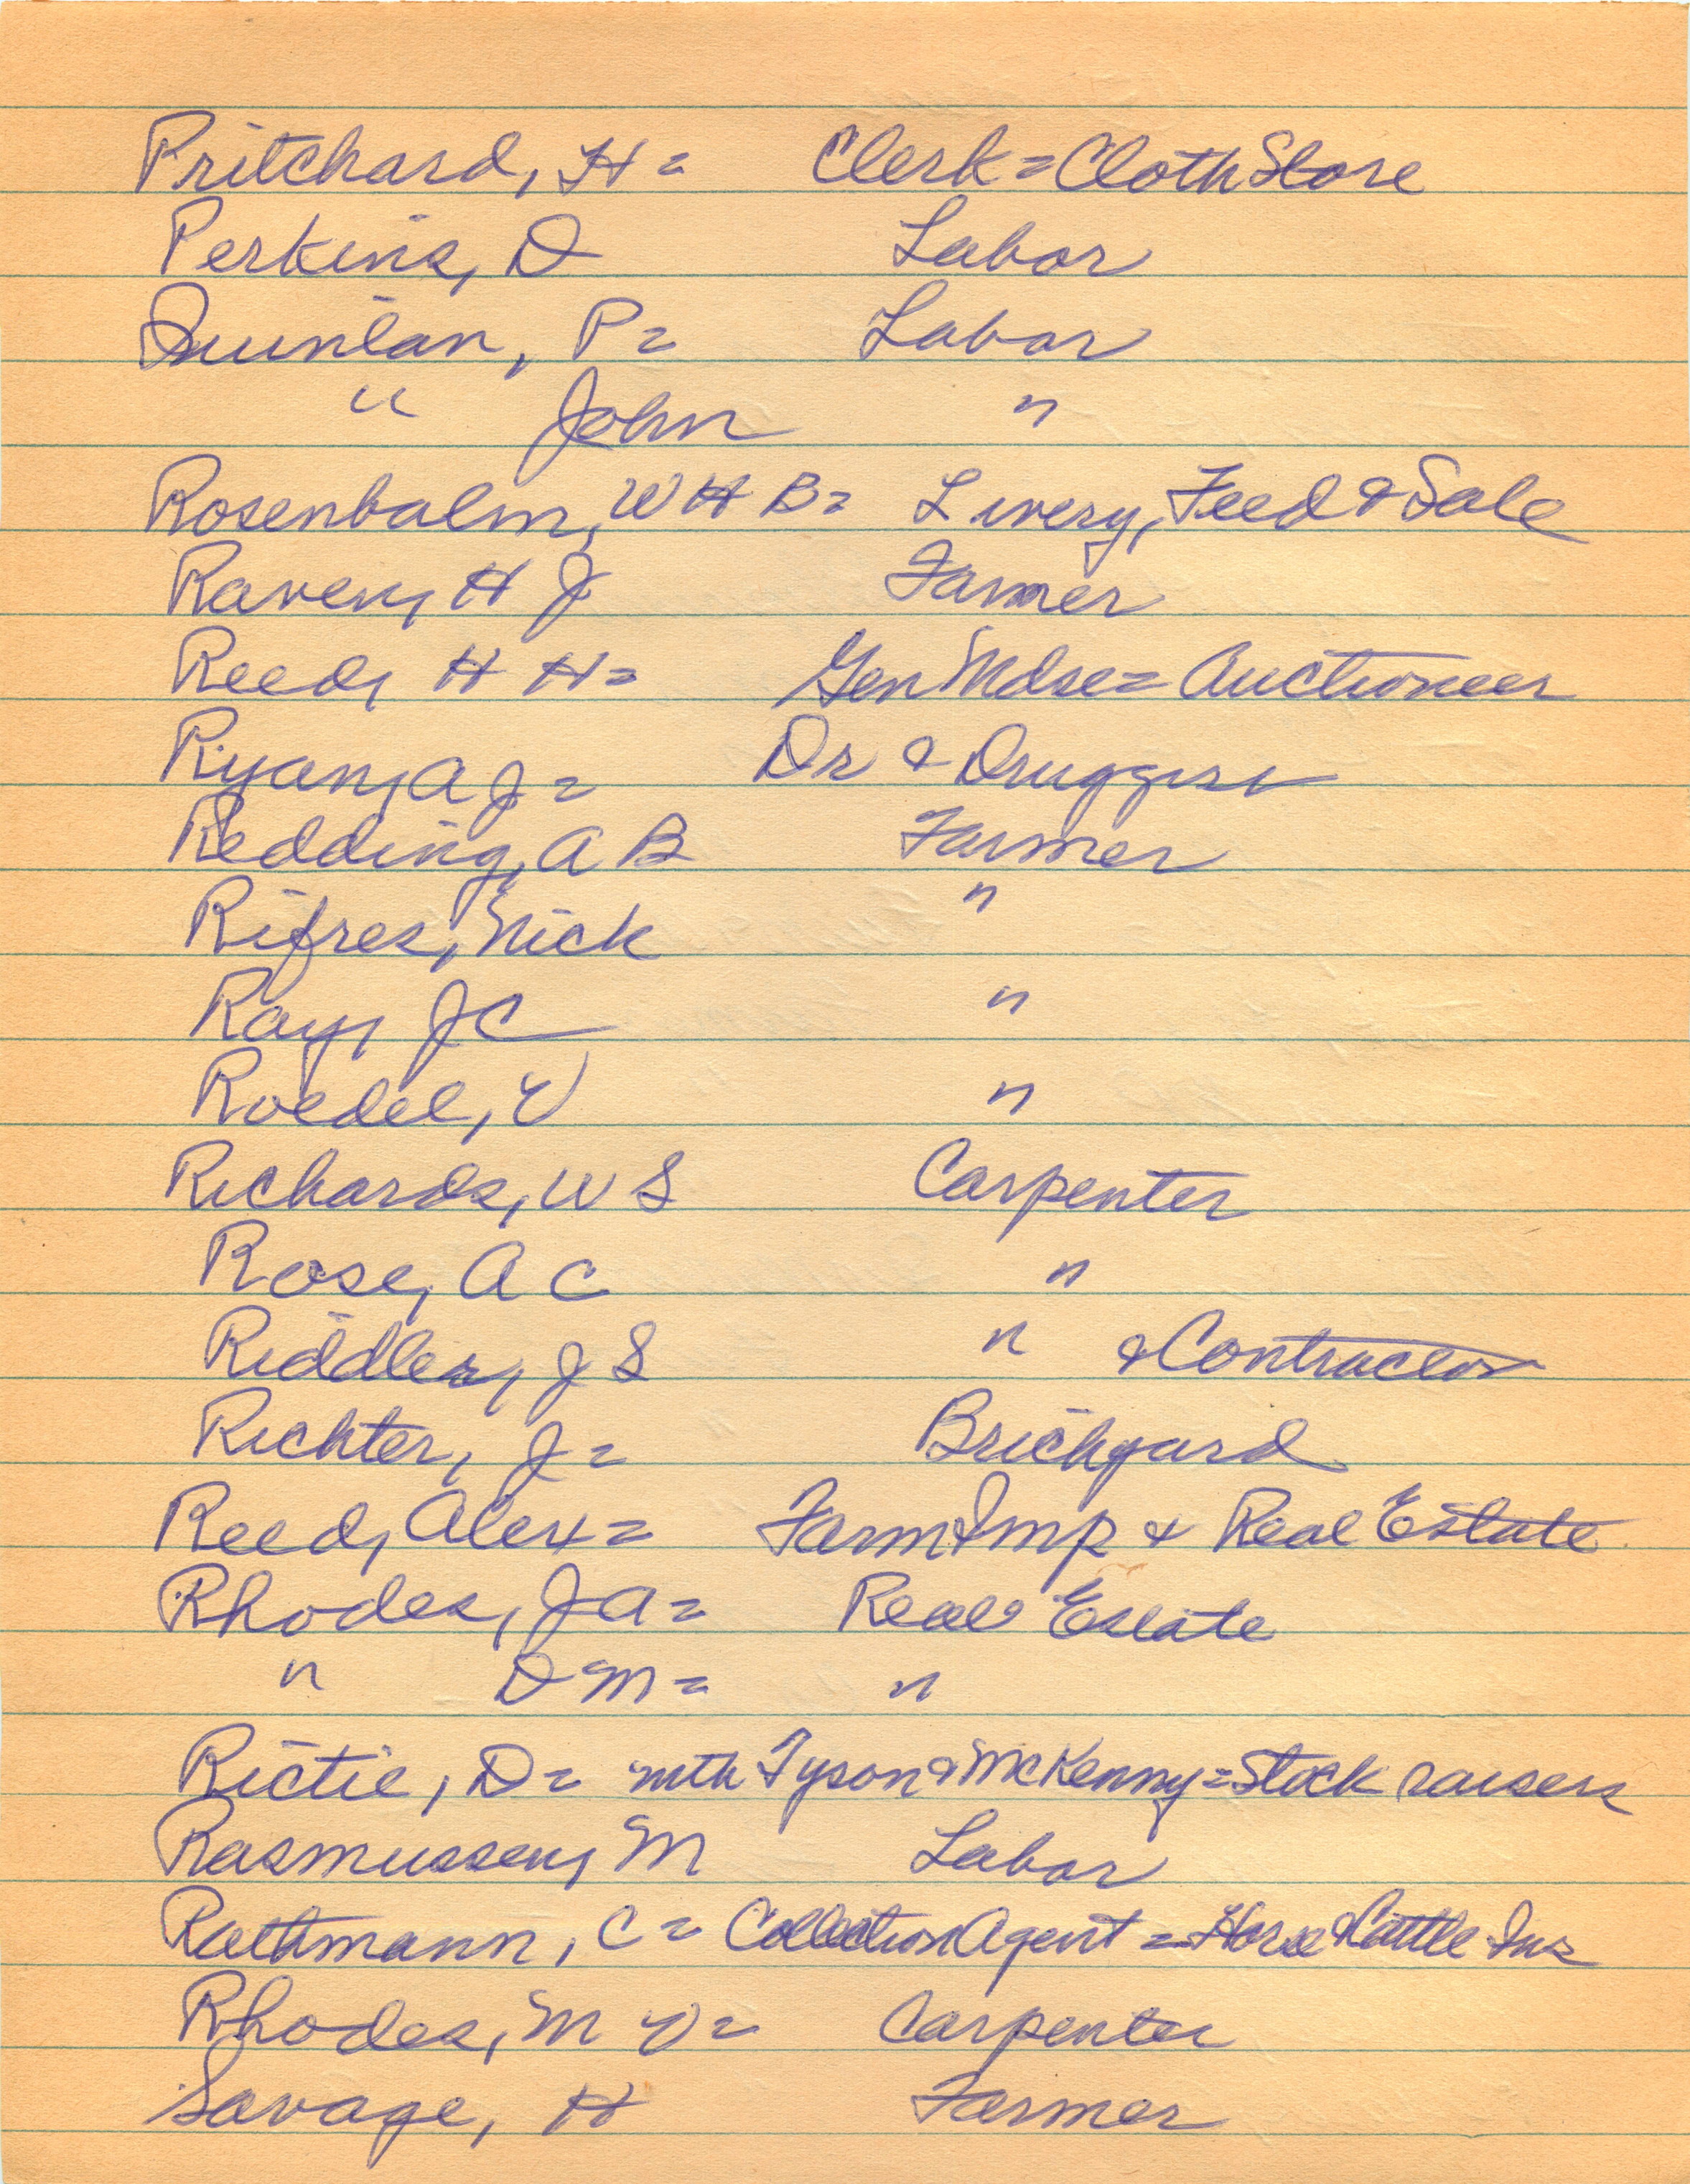 Pritchard, H = Clerk = Cloth Store
Perkins, D Labor
Quinlan, P = Labor
" John "
Rosenbalm, W H B = Livery, Feed & Sale
Raven, H J Farmer
Reed, H H = Gen Mdse = Auctioneer
Ryan, A J = Dr & Druggist
Redding, A B Farmer
Rifres, Nick "
Ray, J C "
Roedel, V "
Richards, W S Carpenter
Rose, A C "
Riddler, J S " & Contractor
Richter, J = Brickyard
Reed, Alex = Farm Imp & Real Estate
Rhodes, J A = Real Estate
" D M = "
Rictie, D = with Tyson & McKenny = Stock raisers
Rasmussen, M Labor
Rathmann, C = Collection Agent = Horse & Cattle Ins
Rhodes, M V = Carpenter
Savage, H Farmer